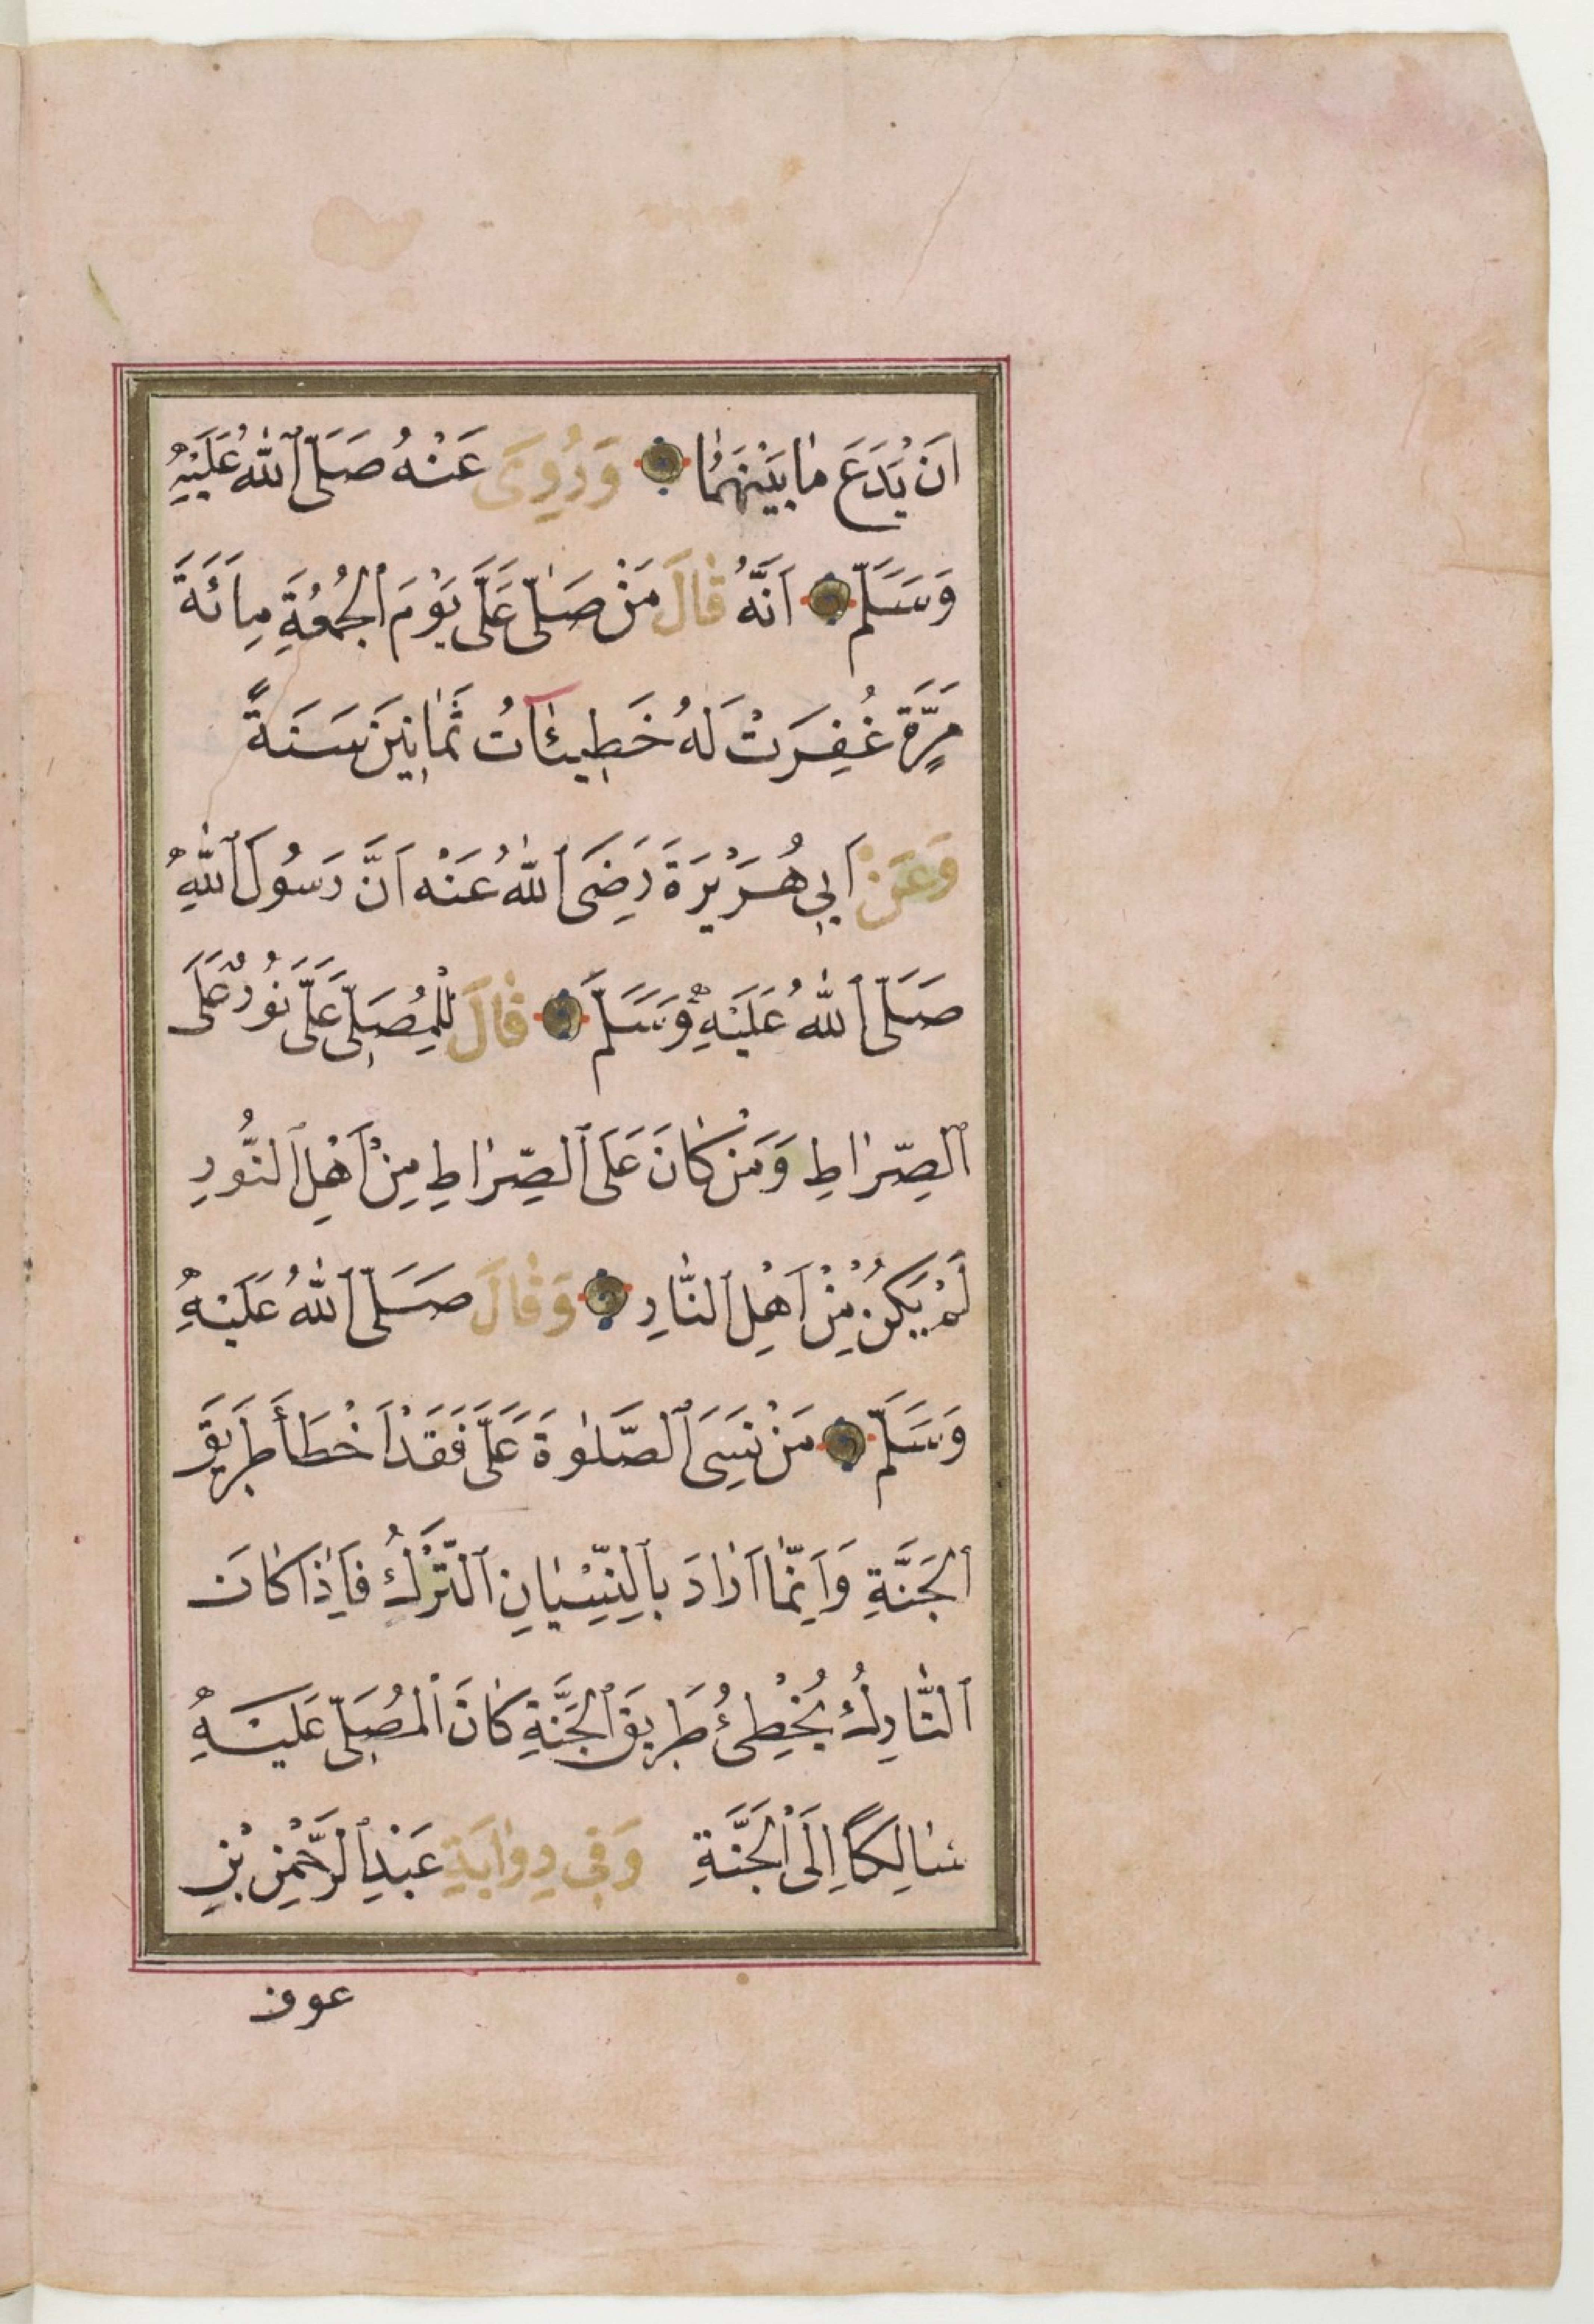 اَنْ يَدَعَ مَا بَيْنَهُمَا وَرُوِىَ عَنْهُ صَلَّى ٱللّٰهُ عَلَيْهِ
وَسَلَّمَ اَنَّهُ قَالَ مَنْ صَلّٰى عَلَىَّ يَوْمَ ٱلْجُمُعَةِ مِائَةَ
مَرَّةٍ غُفِرَتْ لَهُ خَطِيئَاٰتُ ثَمَانِينَ سَنَةً
وَعَنْ اَبِى هُرَيْرَةَ رَضِىَ ٱللّٰهُ عَنْهُ اَنَّ رَسُولَ ٱللّٰهِ
صَلَّى ٱللّٰهُ عَلَيْهِ وَسَلَّمَ قَالَ لِلْمُصَلِّى عَلَىَّ نُورٌ عَلَى
ٱلصِّرَاطِ وَمَنْ كَانَ عَلَى ٱلصِّرَاطِ مِنْ اَهْلِ ٱلنُّورِ
لَمْ يَكُنْ مِنْ اَهْلِ ٱلنَّارِ وَقَالَ صَلَّى ٱللّٰهُ عَلَيْهِ
وَسَلَّمَ مَنْ نَسِىَ ٱلصَّلٰوةَ عَلَىَّ فَقَدْ اَخْطَأَ طَرِيقَ
ٱلْجَنَّةِ وَاِنَّمَا اَرَادَ بِالنِّسْيَانِ ٱلتَّرْكَ فَاِذَا كَانَ
ٱلتَّارِكُ يُخْطِئُ طَرِيقَ ٱلْجَنَّةِ كَانَ ٱلْمُصَلِّى عَلَيْهِ
سَالِكًا اِلَى ٱلْجَنَّةِ وَفِى رِوَايَةِ عَبْدِ ٱلرَّحْمٰنِ بْنِ
عوف